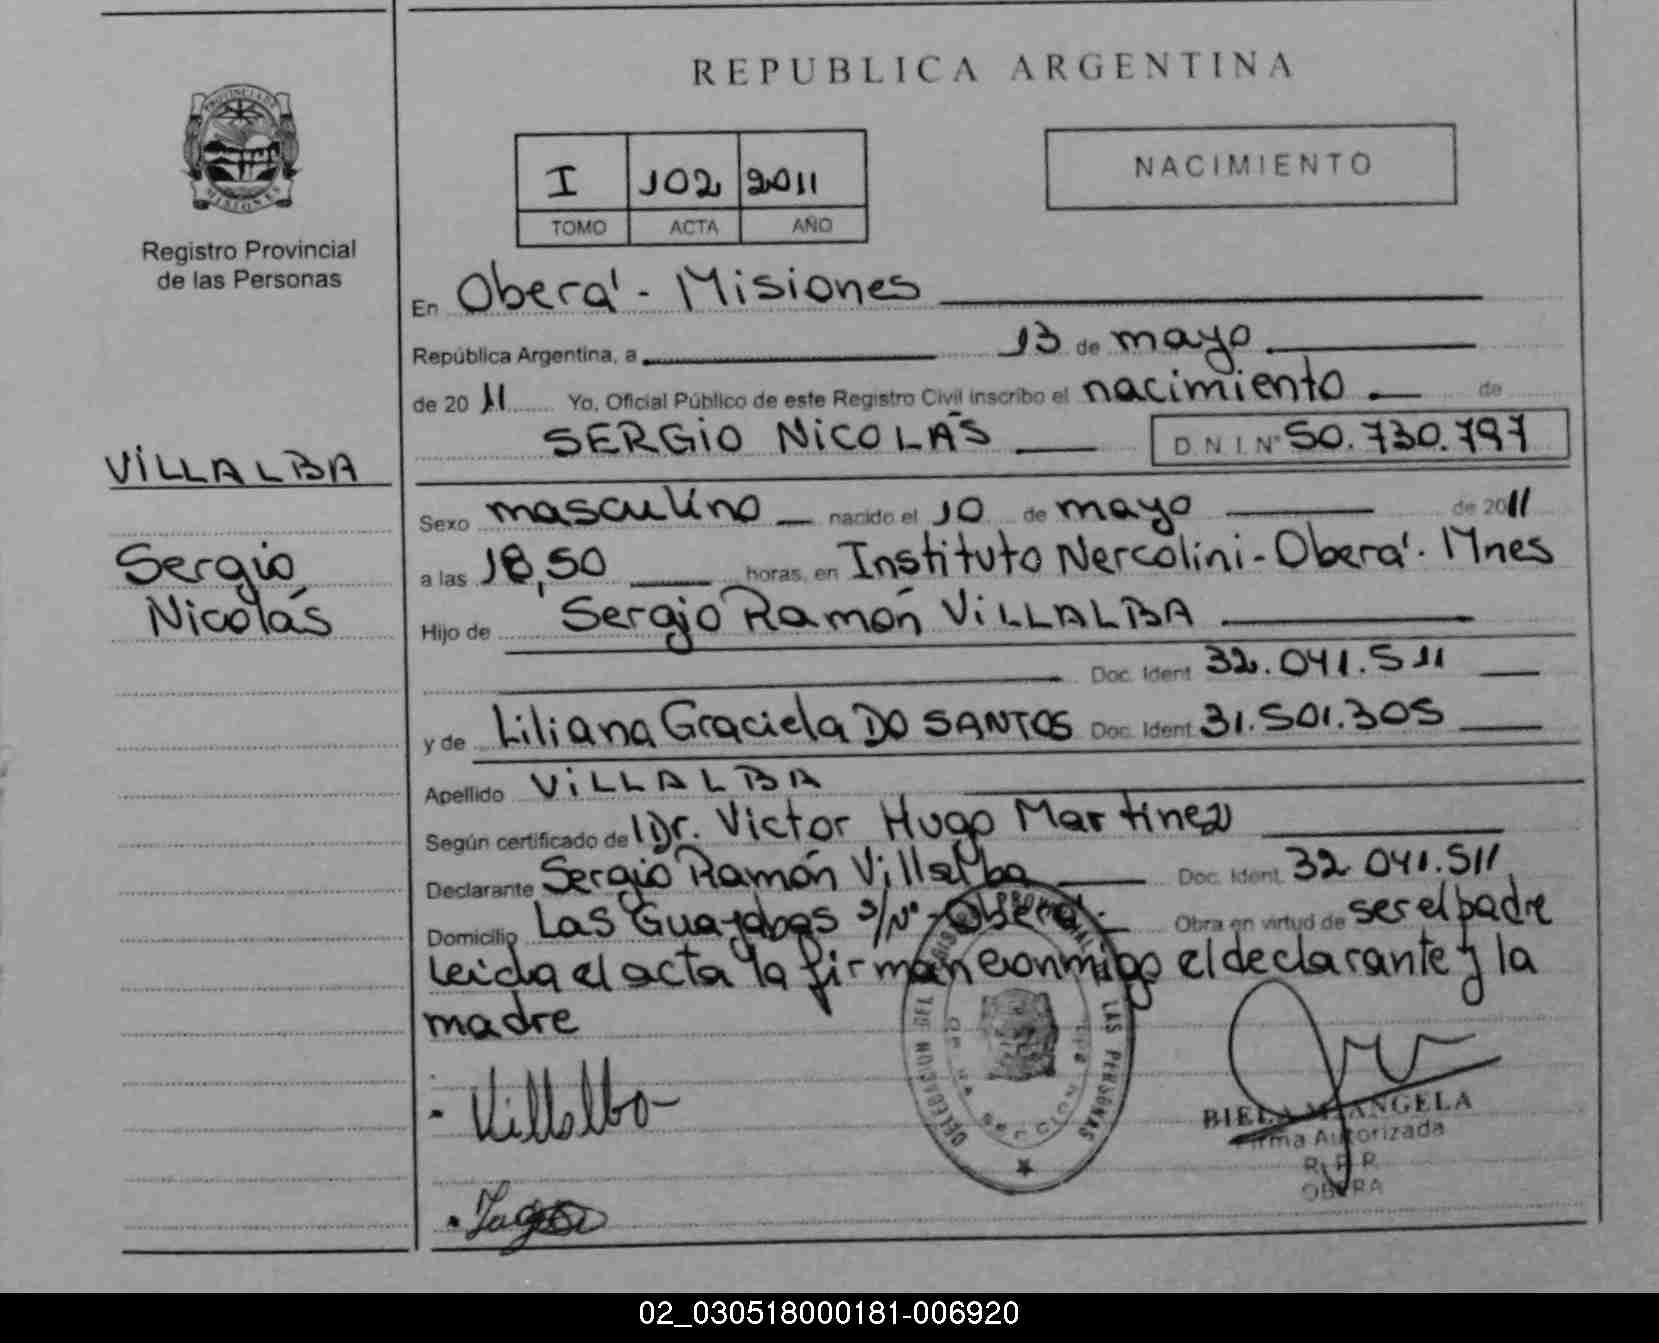 REPUBLICA ARGENTINA
PROVINCIA DE
MISIONES
Registro Provincial
de las Personas
I 102 2011
TOMO ACTA AÑO
NACIMIENTO
En Oberá - Misiones
República Argentina, a 13 de mayo
de 2011 Yo, Oficial Público de este Registro Civil inscribo el nacimiento de
SERGIO NICOLÁS D.N.I. Nº 50.730.797
VILLALBA
Sexo masculino nacido el 10 de mayo de 2011
Sergio
Nicolás
a las 18,50 horas, en Instituto Nercolini - Oberá. Mnes
Hijo de Sergio Ramón VILLALBA
Doc. Ident 32.041.511
y de Liliana Graciela DO SANTOS Doc. Ident. 31.501.305
Apellido VILLALBA
Según certificado del Dr. Victor Hugo Martinez
Declarante Sergio Ramón Villalba Doc. Ident. 32.041.511
Domicilio Las Guayabas s/Nº - Oberá. Obra en virtud de ser el padre
leida el acta la firman conmigo el declarante y la
madre
Villalba
DELEGACION DEL REGISTRO PROVINCIAL DE LAS PERSONAS
BIELA M. ANGELA
Firma Autorizada
R. P. P.
OBERA
02_030518000181-006920